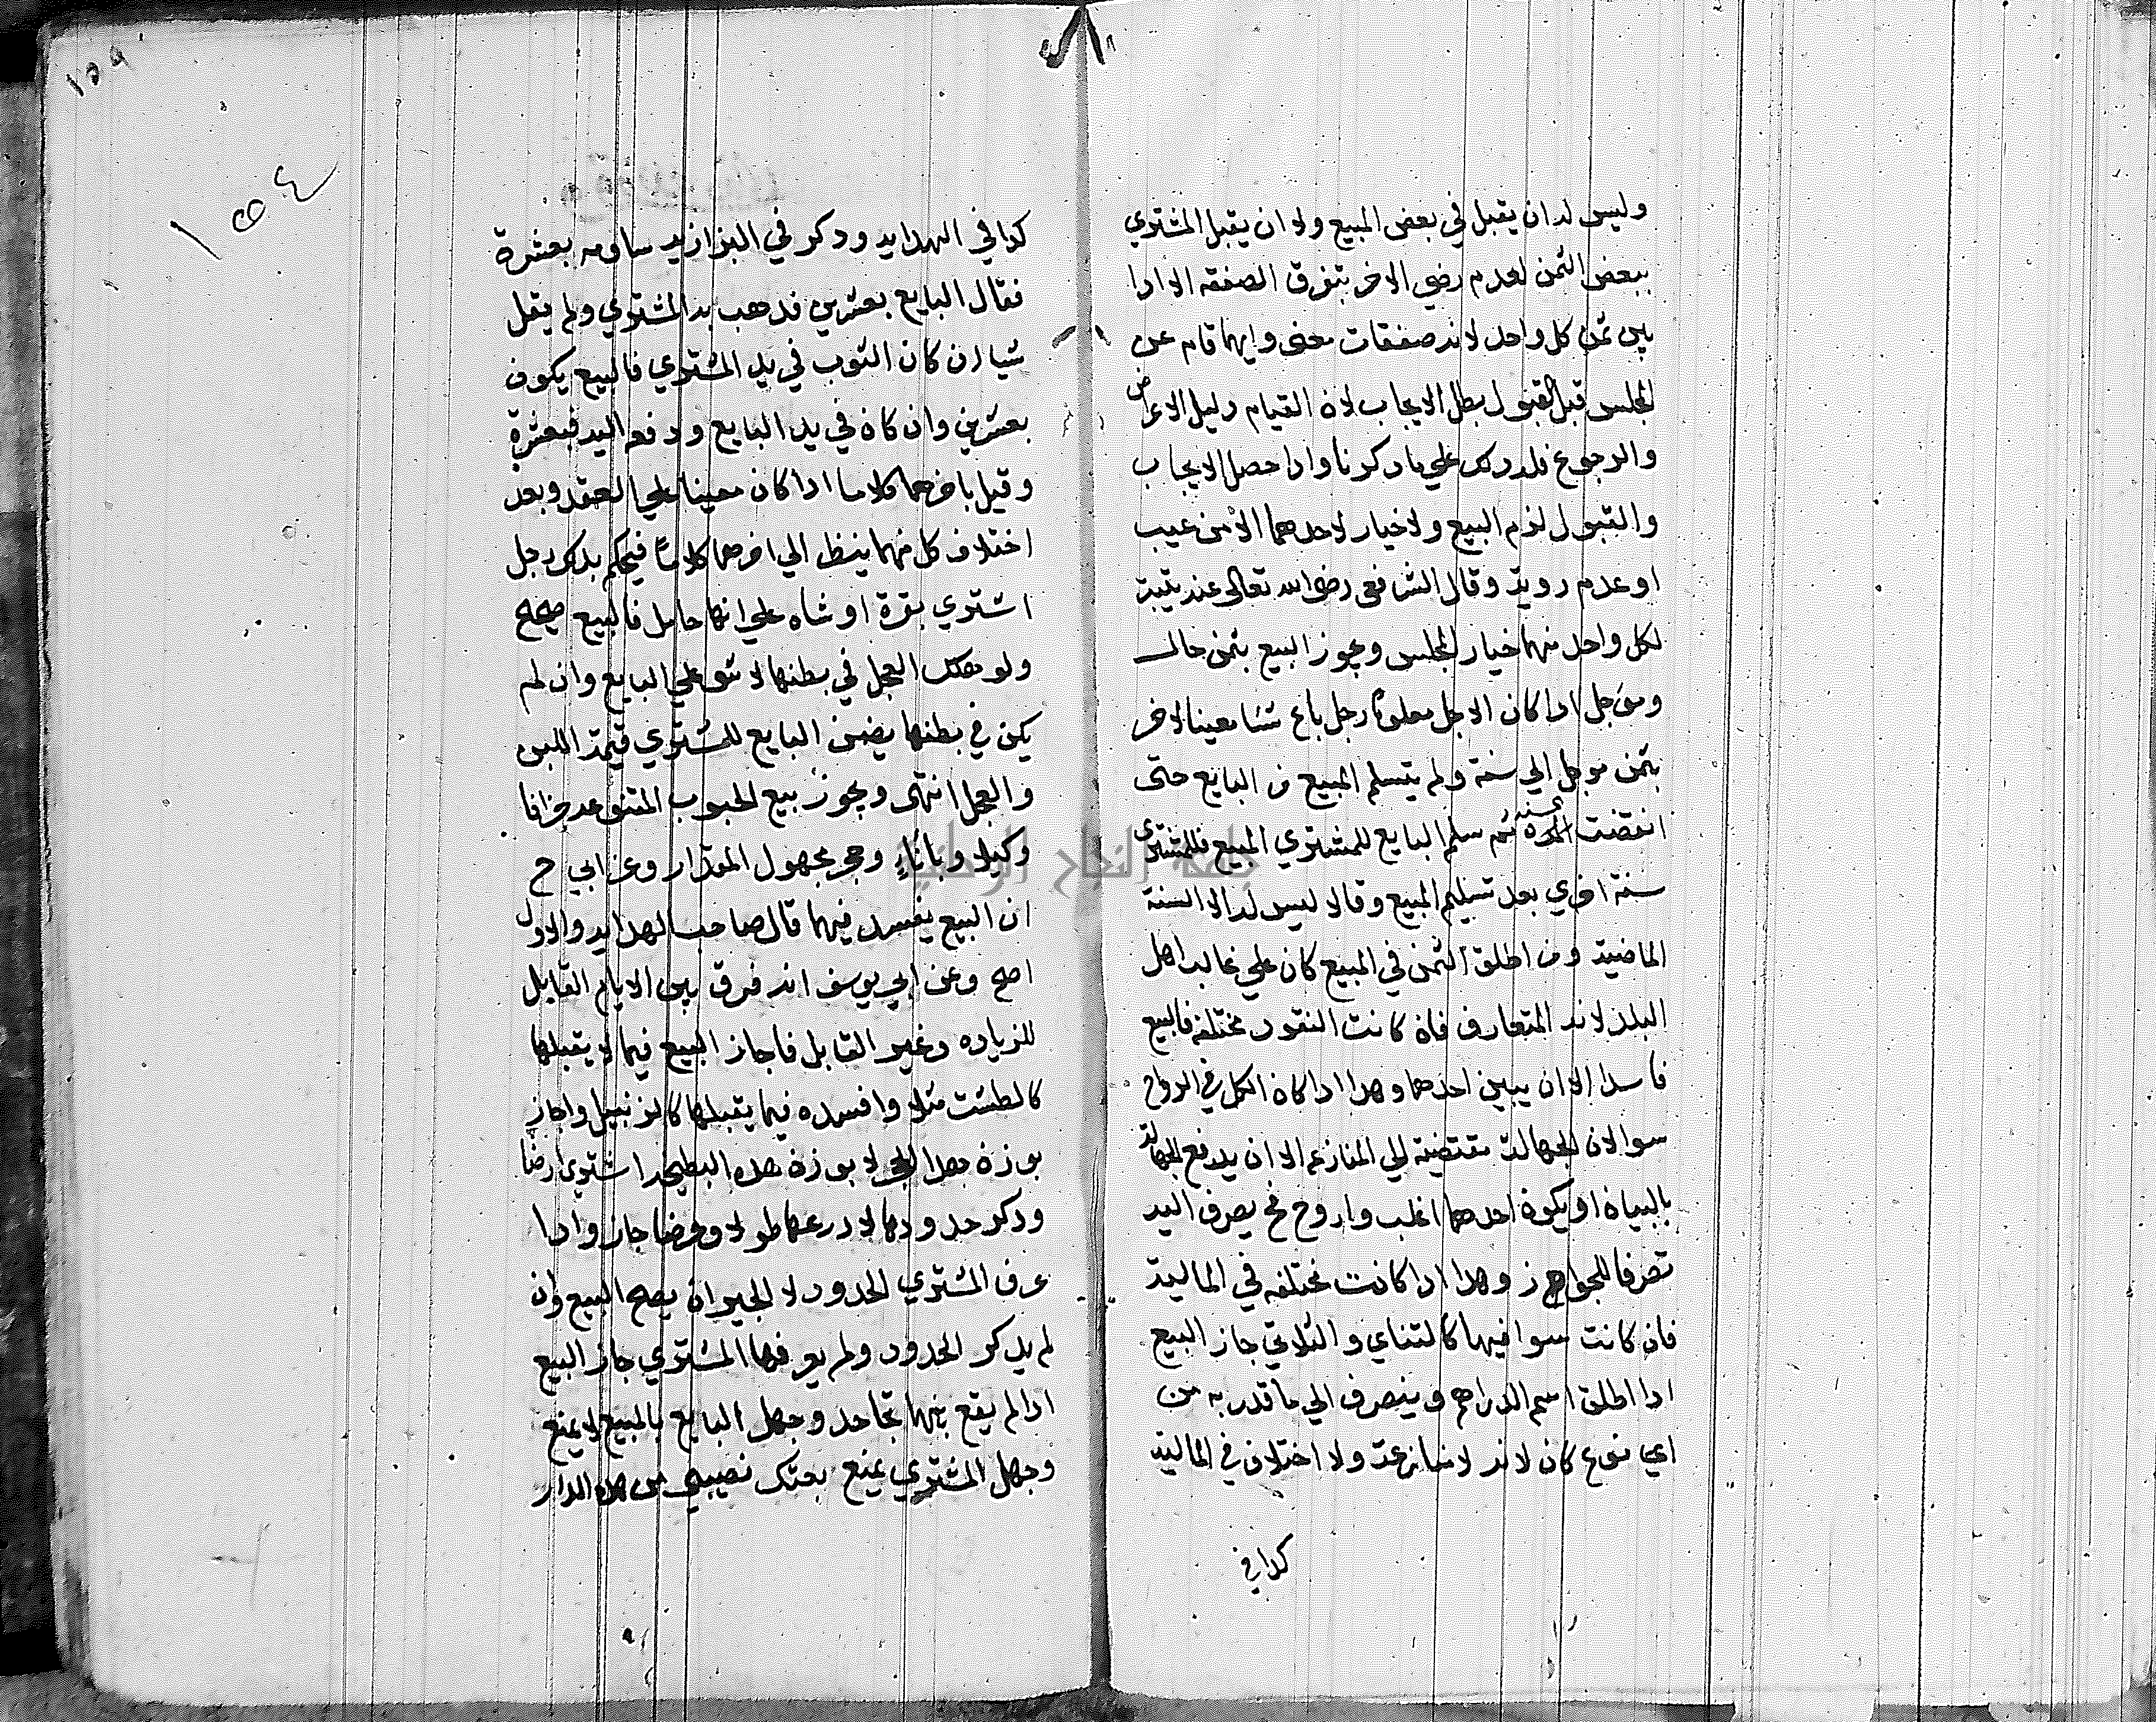 وليس له ان يقبل في بعض المبيع ولا ان يقبل المشتري
ببعض الثمن لعدم رضي الاخر بتفرق الصفقه الا ادا
بين ثمن كل واحد لانه صفقات معني وايهما قام عن
المجلس قبل القبول بطل الايجاب لان القيام دليل الاعراض
والرجوع فله دلك علي ما دكرنا وادا حصل الايجاب
والقبول لزم البيع ولا خيار لاحدهما الا من عيب
او عدم روية وقال الشافعي رضي الله تعالى عنه يثبت
لكل واحد منهما خيار المجلس ويجوز البيع بثمن حال
وموجل ادا كان الاجل معلوما رجل باع شئا معينا لاخر
بثمن موجل الي سنة ولم يتسلم المبيع من البايع حتى
انقضت المدة سنة ثم سلم البايع للمشتري المبيع فللمشتري
سنة اخري بعد تسليم المبيع وقالا ليس له الا السنة
الماضية ومن اطلق الثمن في المبيع كان علي غالب اهل
البلد لانه المتعارف فان كانت النقود مختلفه فالبيع
فاسد الا ان يبين احدهما وهدا ادا كان الكل في الرواج
سوا لان الجهالة مقتضية الي المنازعه الا ان يدفع الجهالة
بالبيان او يكون احدهما اغلب واروج فح يصرف اليه
تصرفا للجواز وهدا ادا كانت مختلفه في المالية
فان كانت سوا فيها كالثناي والثلاثي جاز البيع
ادا اطلق اسم الدراهم وينصرف الي ما قدر به من
اي نوع كان لانه لا منازعة ولا اختلاف في المالية
كدا في
١٥٩
١٥٤
كدا في الهدايه ودكر في البزازيه ساومه بعشرة
فقال البايع بعشرين فدهب به المشتري ولم يقل
شيا ان كان الثوب في يد المشتري فالبيع يكون
بعشرين وان كان في يد البايع ودفعه اليه فبعشرة
وقيل باخرهما كلاما ادا كان معينا علي العقد وبعد
اختلاف كل منهما ينظر الي اخرهما كلاما فيحكم بدلك رجل
اشتري بقرة او شاه علي انها حامل فالبيع صحيح
ولو هلك العجل في بطنها لا شي علي البايع وان لم
يكن في بطنها يضمن البايع للمشتري قيمة اللبن
والعجل انتهى ويجوز بيع الحبوب المتنوعه جزافا
وكيلا وباناء وحجر مجهول المقدار وعن ابي ح
ان البيع يفسد فيهما قال صاحب الهدايه والاول
اصح وعن ابي يوسف انه فرق بين الاناء القابل
للزياده وغير القابل فاجاز البيع فيما لا يقبلها
كالطشت مثلا وافسده فيما يقبلها كالزنبيل واجاز
بوزن هدا الحجر لا بوزن هده البطيخه اشتري ارضا
ودكر حدودها لا درعها طولا وعرضا جاز وادا
عرف المشتري الحدود لا الجيران يصح البيع وان
لم يدكر الحدود ولم يعرفها المشتري جاز البيع
ادا لم يقع بينهما تجاحد وجهل البايع بالمبيع لا يمنع
وجهل المشتري يمنع بعتك نصيبي من هده الدار
جامعة النجاح الوطنية